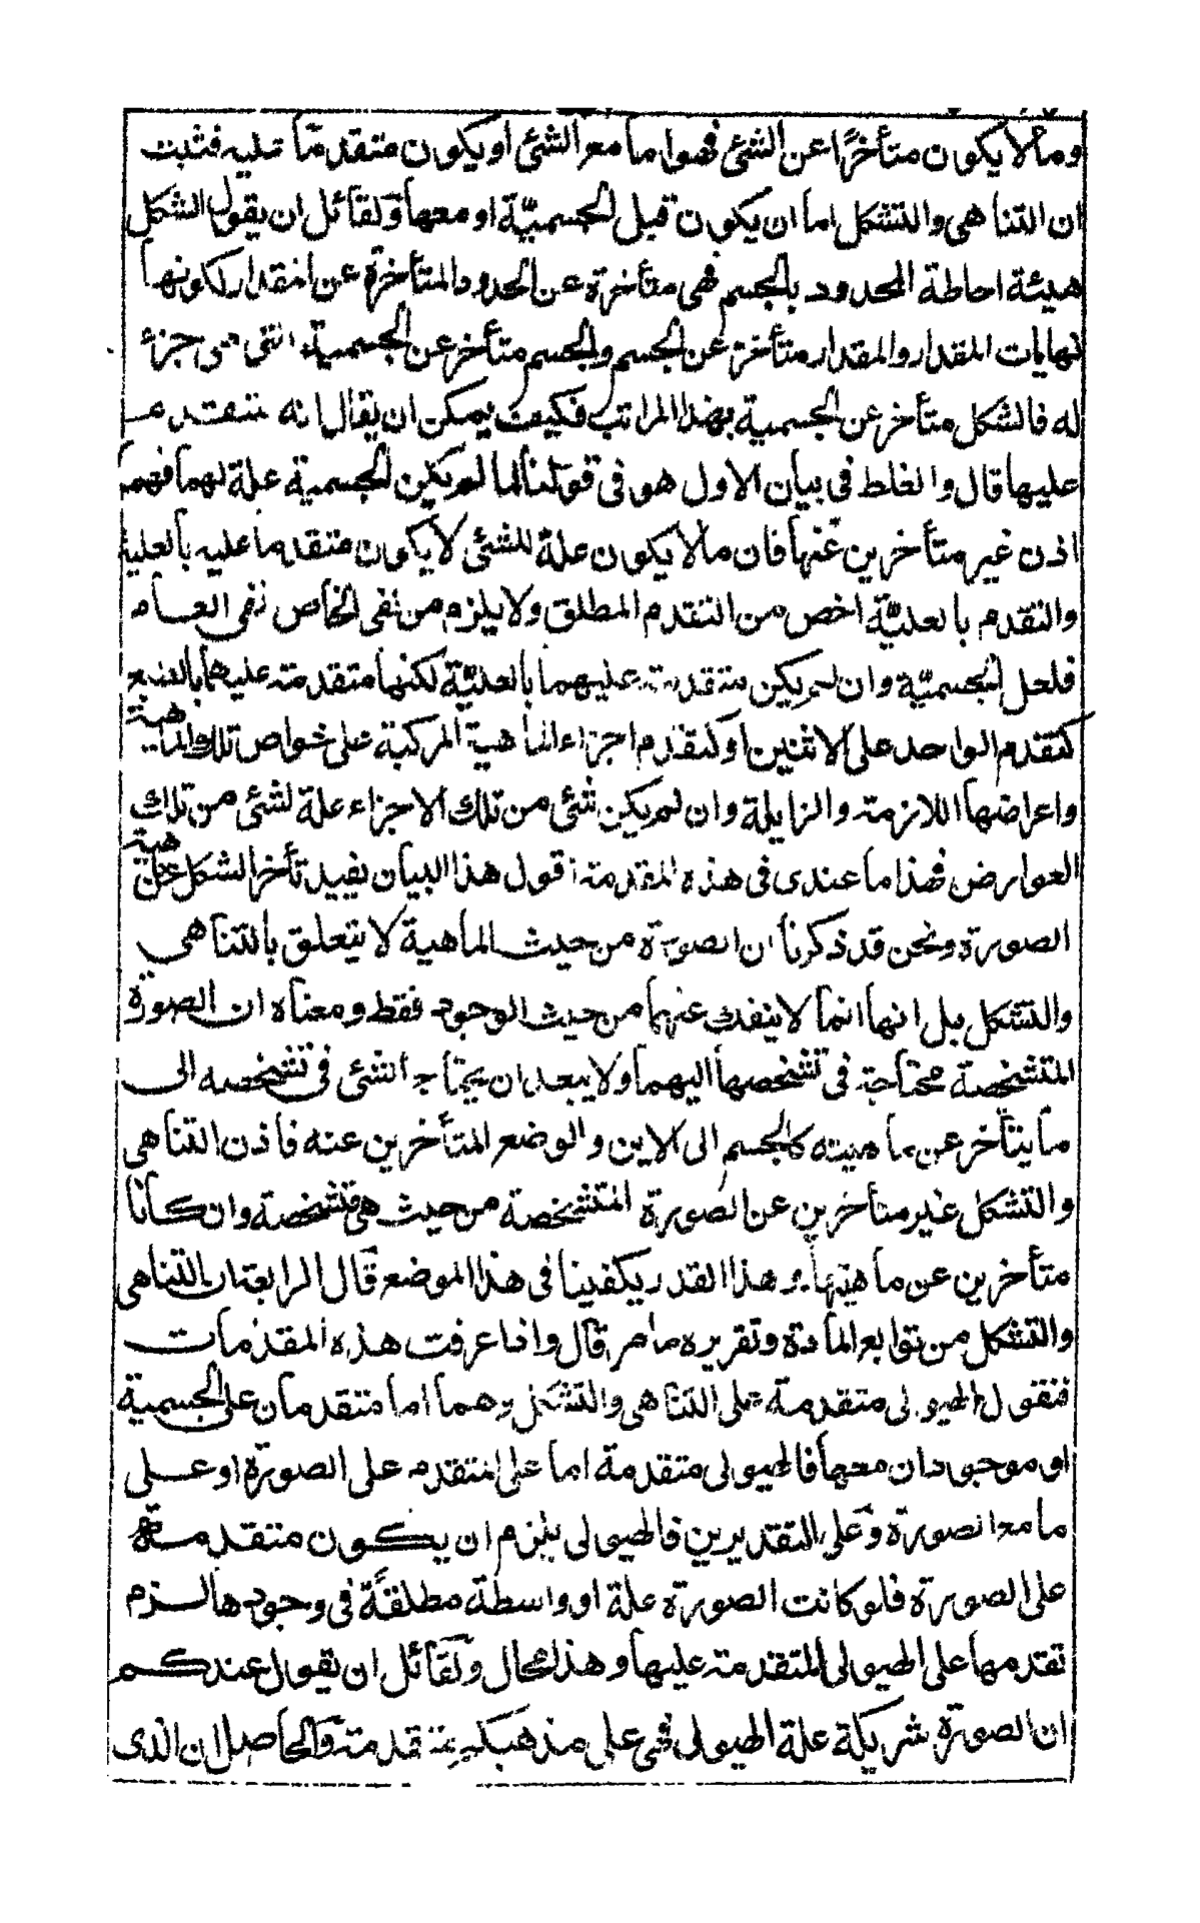 وما لا يكون متأخرًا عن الشئ فهو اما مع الشئ او يكون متقدمّا عليه فثبت
ان التناهى والتشكل اما ان يكون قبل الجسميّة او معها ولقائل ان يقول الشكل
هيئة احاطة الحدود بالجسم فهى متأخرة عن الحدود المتأخرة عن المقدار لكونها
نهايات المقدار والمقدار متأخر عن الجسم والجسم متأخر عن الجسمية التى هى جزء
له فالشكل متأخر عن الجسمية بهذا المراتب فكيف يمكن ان يقال انه متقدم
عليها قال والغلط فى بيان الاول هو فى قولنا لما لم يكن الجسمية علة لهما فهما
اذن غير متأخرين عنها فان ما لا يكون علة للشئ لا يكون متقدما عليه بالعلية
والتقدم بالعليّة اخص من التقدم المطلق ولا يلزم من نفى الخاص نفى العام
فلعل الجسميّة وان لم يكن متقدمة عليهما بالعليّة لكنها متقدمة عليهما بالطبع
كتقدم الواحد على الاثنين او كتقدم اجزاء الماهية المركبة على خواص تلك الماهية
واعراضها اللازمة والزايلة وان لم يكن شئ من تلك الاجزاء علة لشئ من تلك
العوارض فهذا ما عندى فى هذه المقدمة اقول هذا البيان يفيد تأخر الشكل عن ماهية
الصورة ونحن قد ذكرنا ان الصورة من حيث الماهية لا يتعلق بالتناهى
والتشكل بل انها انما لا ينفك عنهما من حيث الوجود فقط ومعناه ان الصورة
المتشخصة محتاجة فى تشخصها اليهما ولا يبعد ان يحتاج الشئ فى تشخصه الى
ما يتأخر عن ماهيته كالجسم الى الاين والوضع المتأخرين عنه فاذن التناهى
والتشكل غير متأخرين عن الصورة المتشخصة من حيث هى متشخصة وان كانا
متأخرين عن ماهيتها وهذا القدر يكفينا فى هذا الموضع قال الرابعة ان التناهى
والتشكل من توابع المادة وتقريره ما مر قال واذا عرفت هذه المقدمات
فنقول الهيولى متقدمة على التناهى والتشكل وهما اما متقدمان على الجسمية
او موجودان معها فالهيولى متقدمة اما على المتقدم على الصورة او على
ما مع الصورة وعلى التقديرين فالهيولى يلزم ان يكون متقدمة
على الصورة فلو كانت الصورة علة او واسطة مطلقة فى وجودها لزم
تقدمها على الهيولى المتقدمة عليها وهذا محال ولقائل ان يقول عندكم
ان الصورة شريكة علة الهيولى فهى على مذهبكم متقدمة والحاصل ان الذى